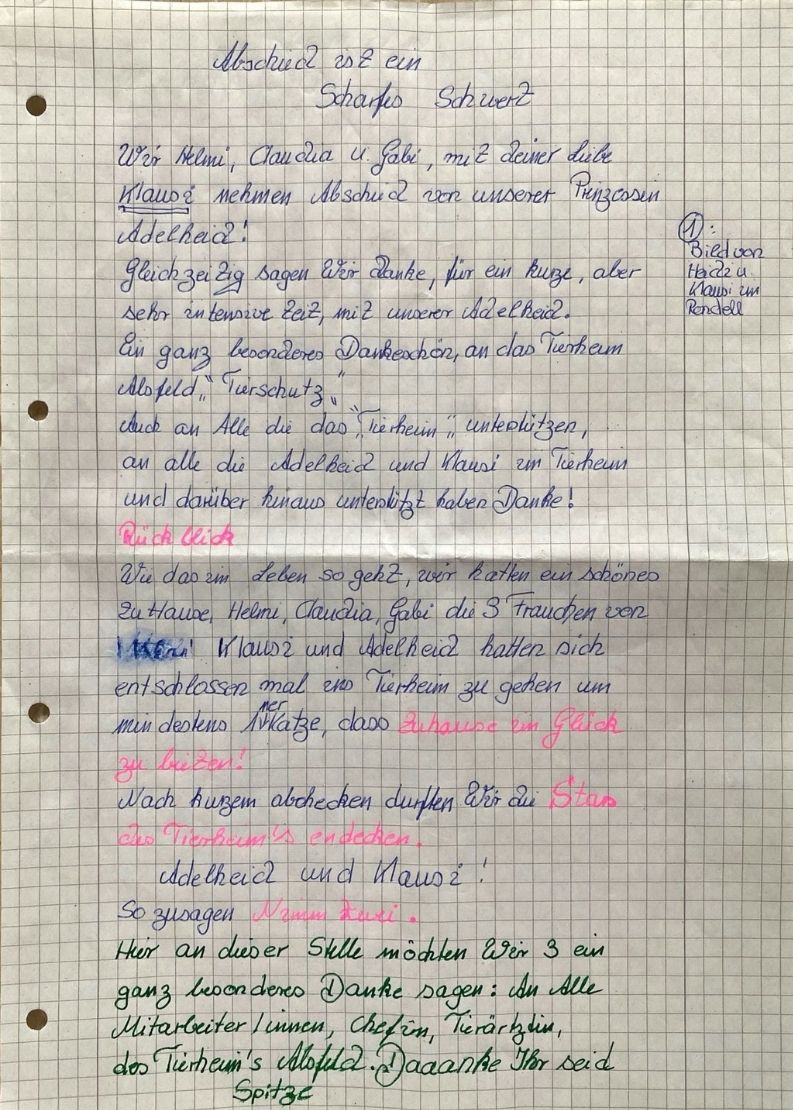 Abschied ist ein
Scharfes Schwert
Wir Helmi, Claudia u. Gabi, mit deiner Liebe
Klausi nehmen Abschied von unserer Prinzessin
Adelheid!
Gleichzeitig sagen Wir danke, für ein kurze, aber
sehr intensive Zeit, mit unserer Adelheid.
Ein ganz besonderes Dankeschön, an das Tierheim
Alsfeld „Tierschutz"
Auch an Alle die das „Tierheim" unterstützen,
an alle die Adelheid und Klausi im Tierheim
und darüber hinaus unterstützt haben Danke!
①:
Bild von
Heidi u
Klausi im
Rondell
Rückblick
Wie das im Leben so geht, wir hatten ein schönes
zu Hause, Helmi, Claudia, Gabi die 3 Frauchen von
Klausi und Adelheid hatten sich
entschlossen mal ins Tierheim zu gehen um
mindestens 1ner Katze, dass Zuhause im Glück
zu bieten!
Nach kurzem abchecken durften Wir die Stars
des Tierheim's endecken.
Adelheid und Klausi!
So zusagen Nimm zwei.
Hier an dieser Stelle möchten Wir 3 ein
ganz besonderes Danke sagen: An Alle
Mitarbeiter/innen, Chefin, Tierärztin,
des Tierheim's Alsfeld. Daaanke Ihr seid
Spitze